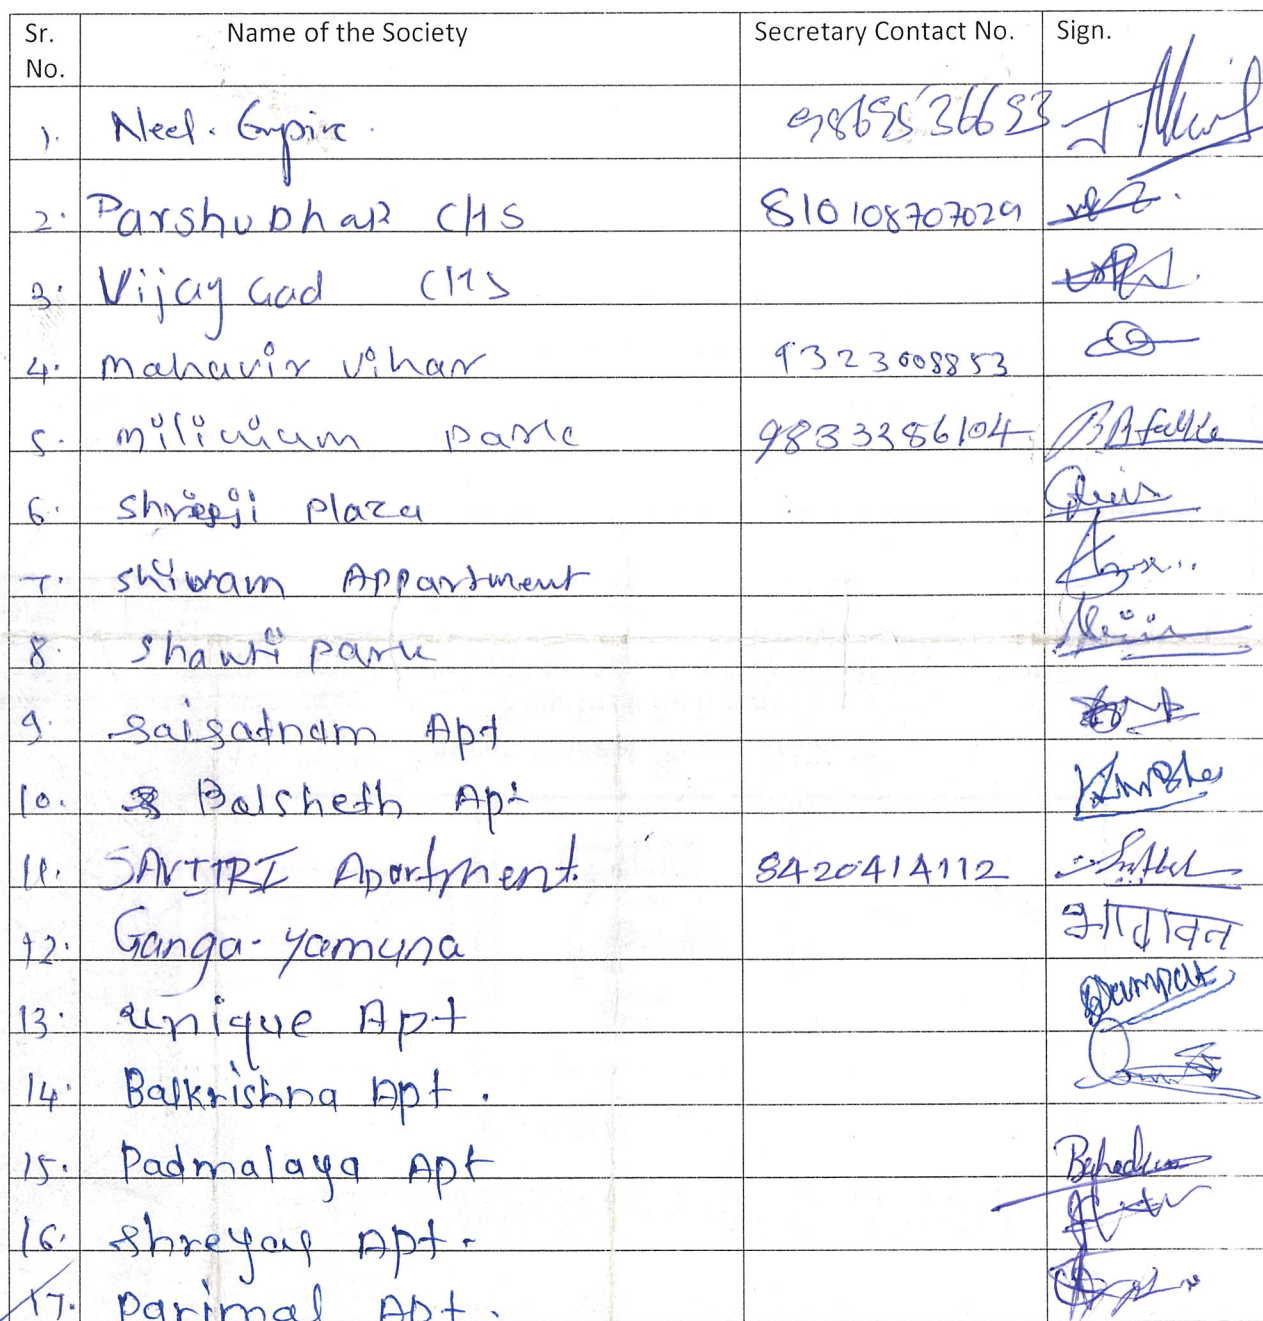 Sr. No. Name of the Society Secretary Contact No. Sign.
1. Neel. Empire. 9869536693
2. Parshubhar CHS 810108707029
3. Vijay Gad CHS
4. mahavir vihar 9323008853
5. milinium park 9833386104
6. shreeji plaza
7. shiwam Appartment
8. shanti park
9. saisatnam Apt
10. Balsheth Apt
11. SAVITRI Apartment. 8420414112
12. Ganga-yamuna
13. unique Apt
14. Balkrishna Apt.
15. Padmalaya Apt
16. shreyas Apt.
17. parimal Apt.